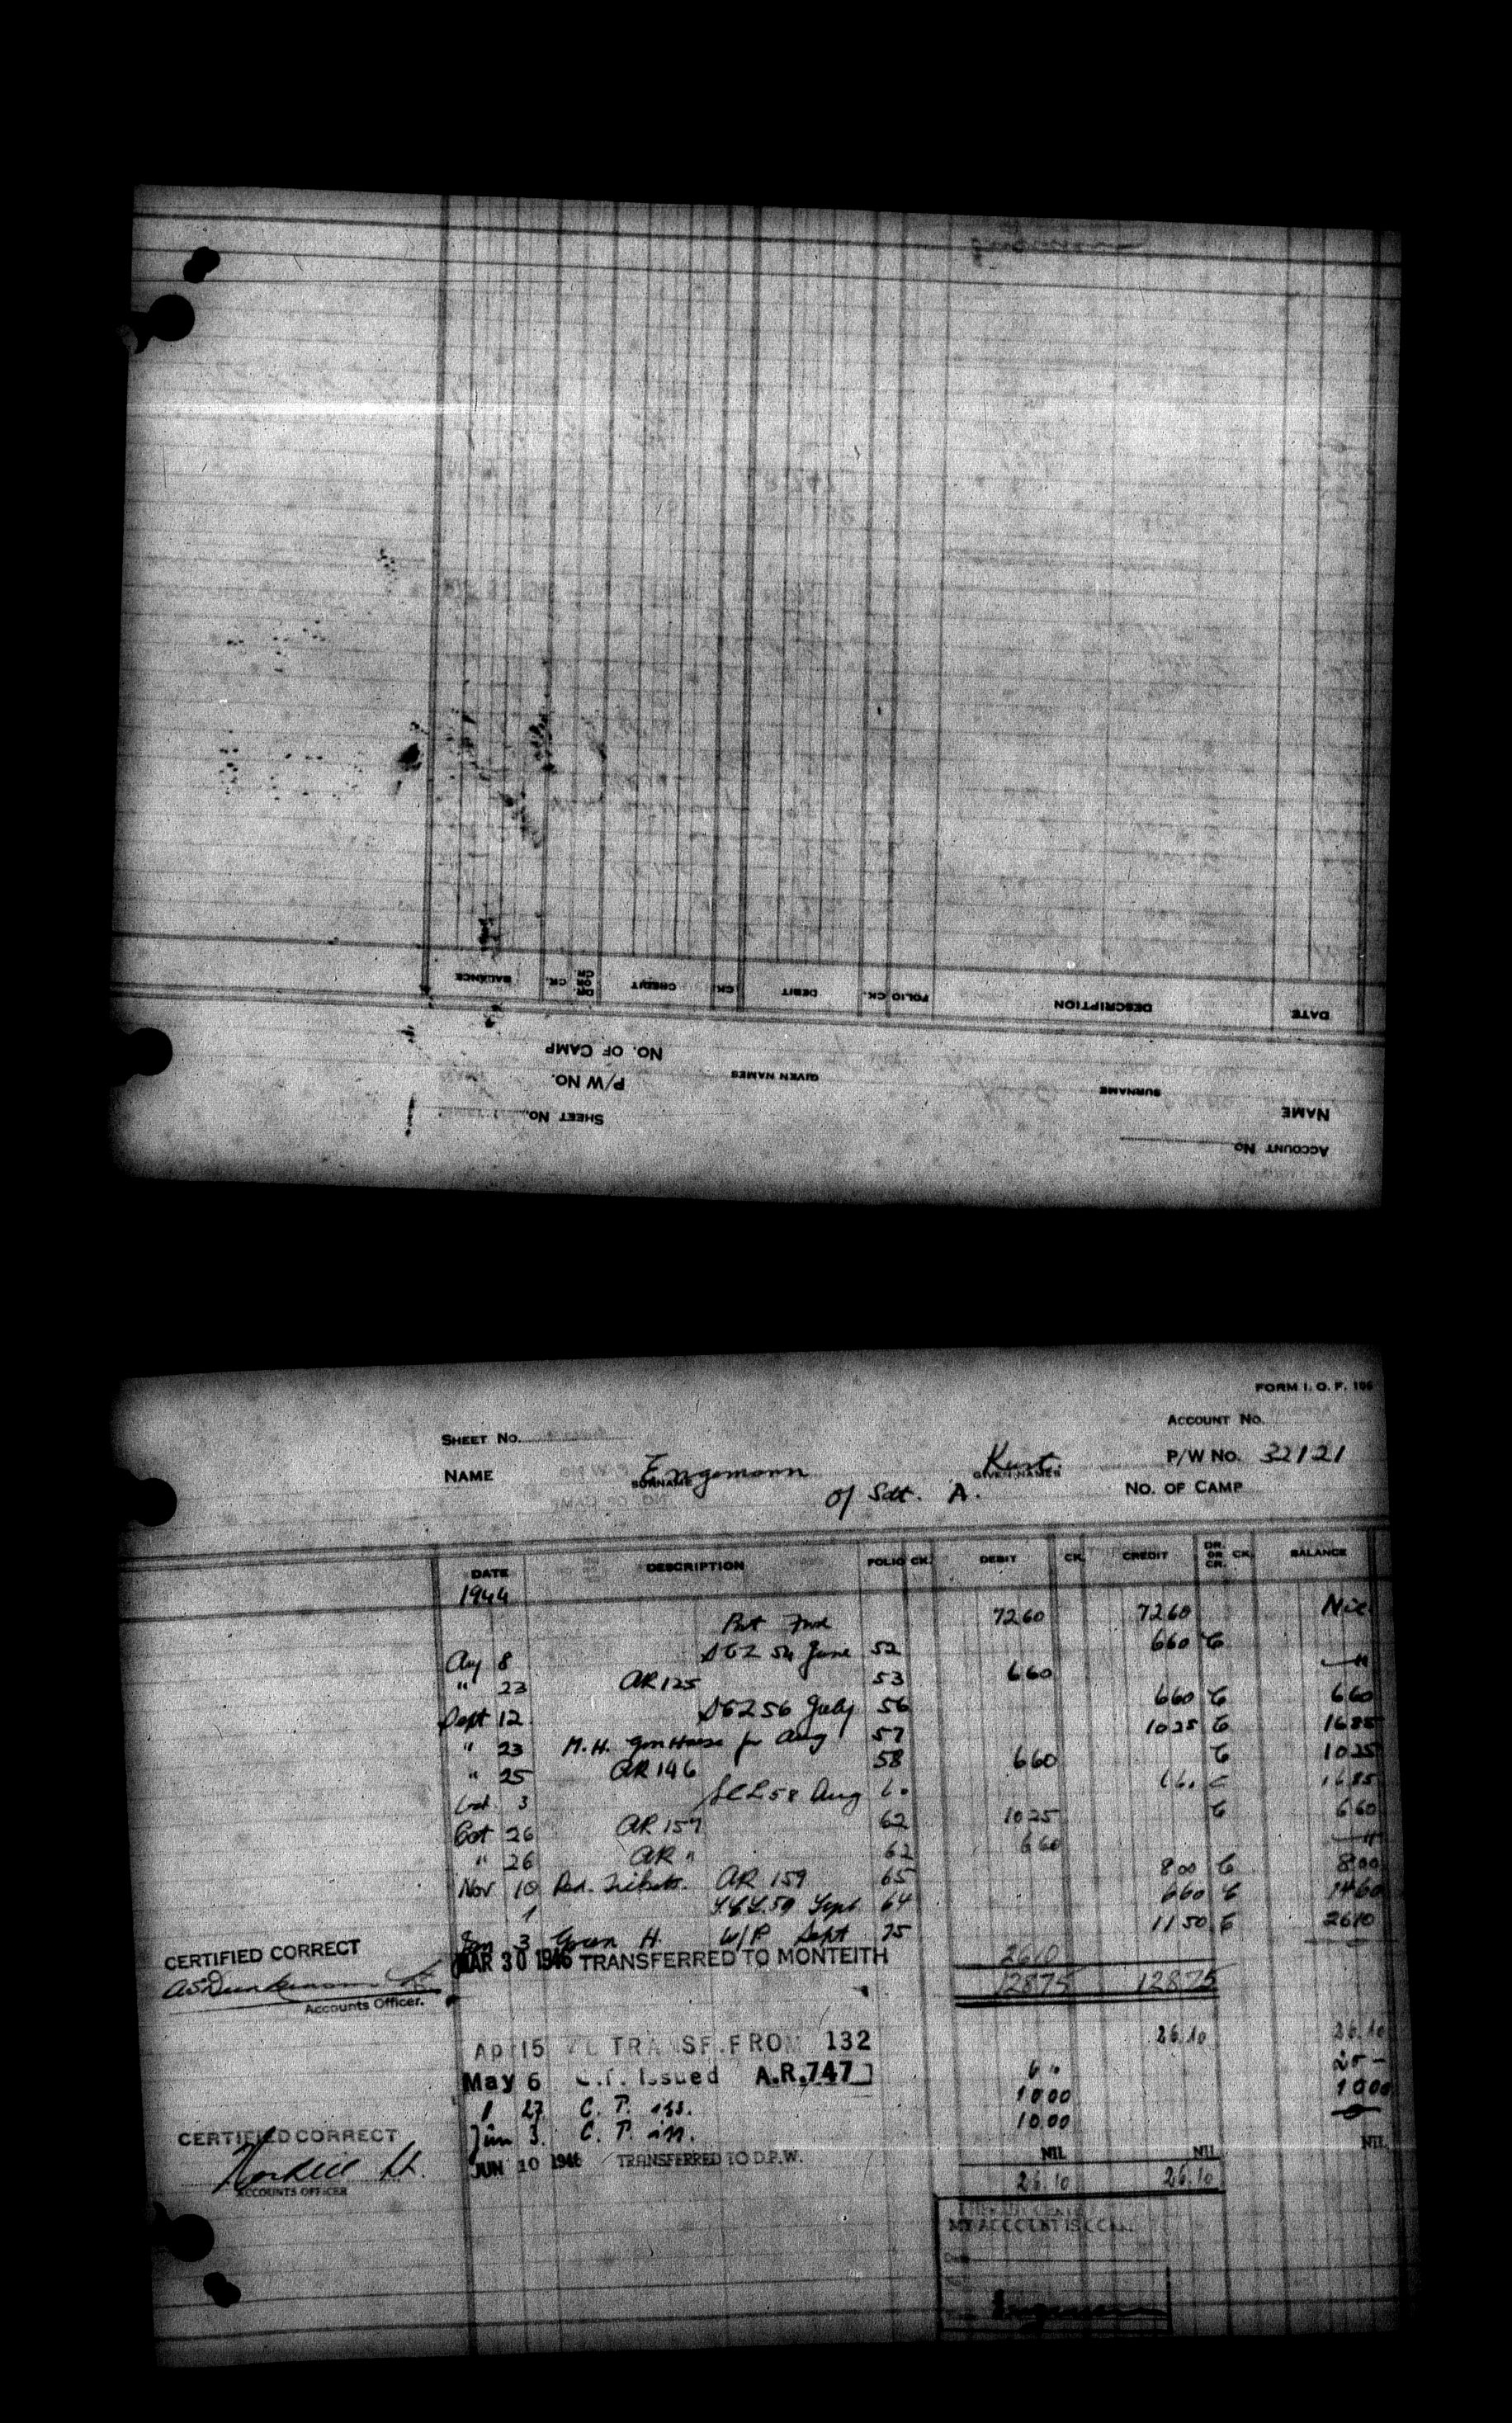 BALANCE DR. OR CR. CK. CREDIT CK. DEBIT FOLIO CK. DESCRIPTION DATE
NO. OF CAMP
P/W NO. GIVEN NAMES
SHEET NO. SURNAME NAME
ACCOUNT NO.
FORM I. O. F. 106
SHEET No. ACCOUNT No.
NAME Engemann Kurt P/W No. 32121
SURNAME GIVEN NAMES
O/ Sdt. A. NO. OF CAMP
DATE DESCRIPTION FOLIO CK. DEBIT CK. CREDIT DR. OR CR. CK. BALANCE
1944
Fwd 7260 7260 Nil
Aug 8 54 June 52 660 C
" 23 AR 125 53 660
Sept 12 56 July 56 660 C 660
" 23 M.H. for Aug 57 1025 C 1685
" 25 AR 146 58 660 C 1025
Oct 3 58 Aug 1685
Oct 26 AR 157 62 1025 C 660
" 26 AR " 62 660
Nov 10 Red. Tickets. AR 159 65 800 C 800
1 59 Sept 64 660 C 1460
3 Green H. W/P Sept 75 1150 C 2610
CERTIFIED CORRECT MAR 30 1946 TRANSFERRED TO MONTEITH 2610
12875 12875
Accounts Officer.
Apr 15 TRANSF. FROM 132 26.10 26.10
May 6 C.T. Issued A.R. 747
27 C. T. iss. 1000 1000
CERTIFIED CORRECT Jun 3. C. T. iss. 1000
JUN 10 1946 TRANSFERRED TO D.P.W. NIL NIL NIL
ACCOUNTS OFFICER 26.10 26.10
MY ACCOUNT IS
Date
Engemann